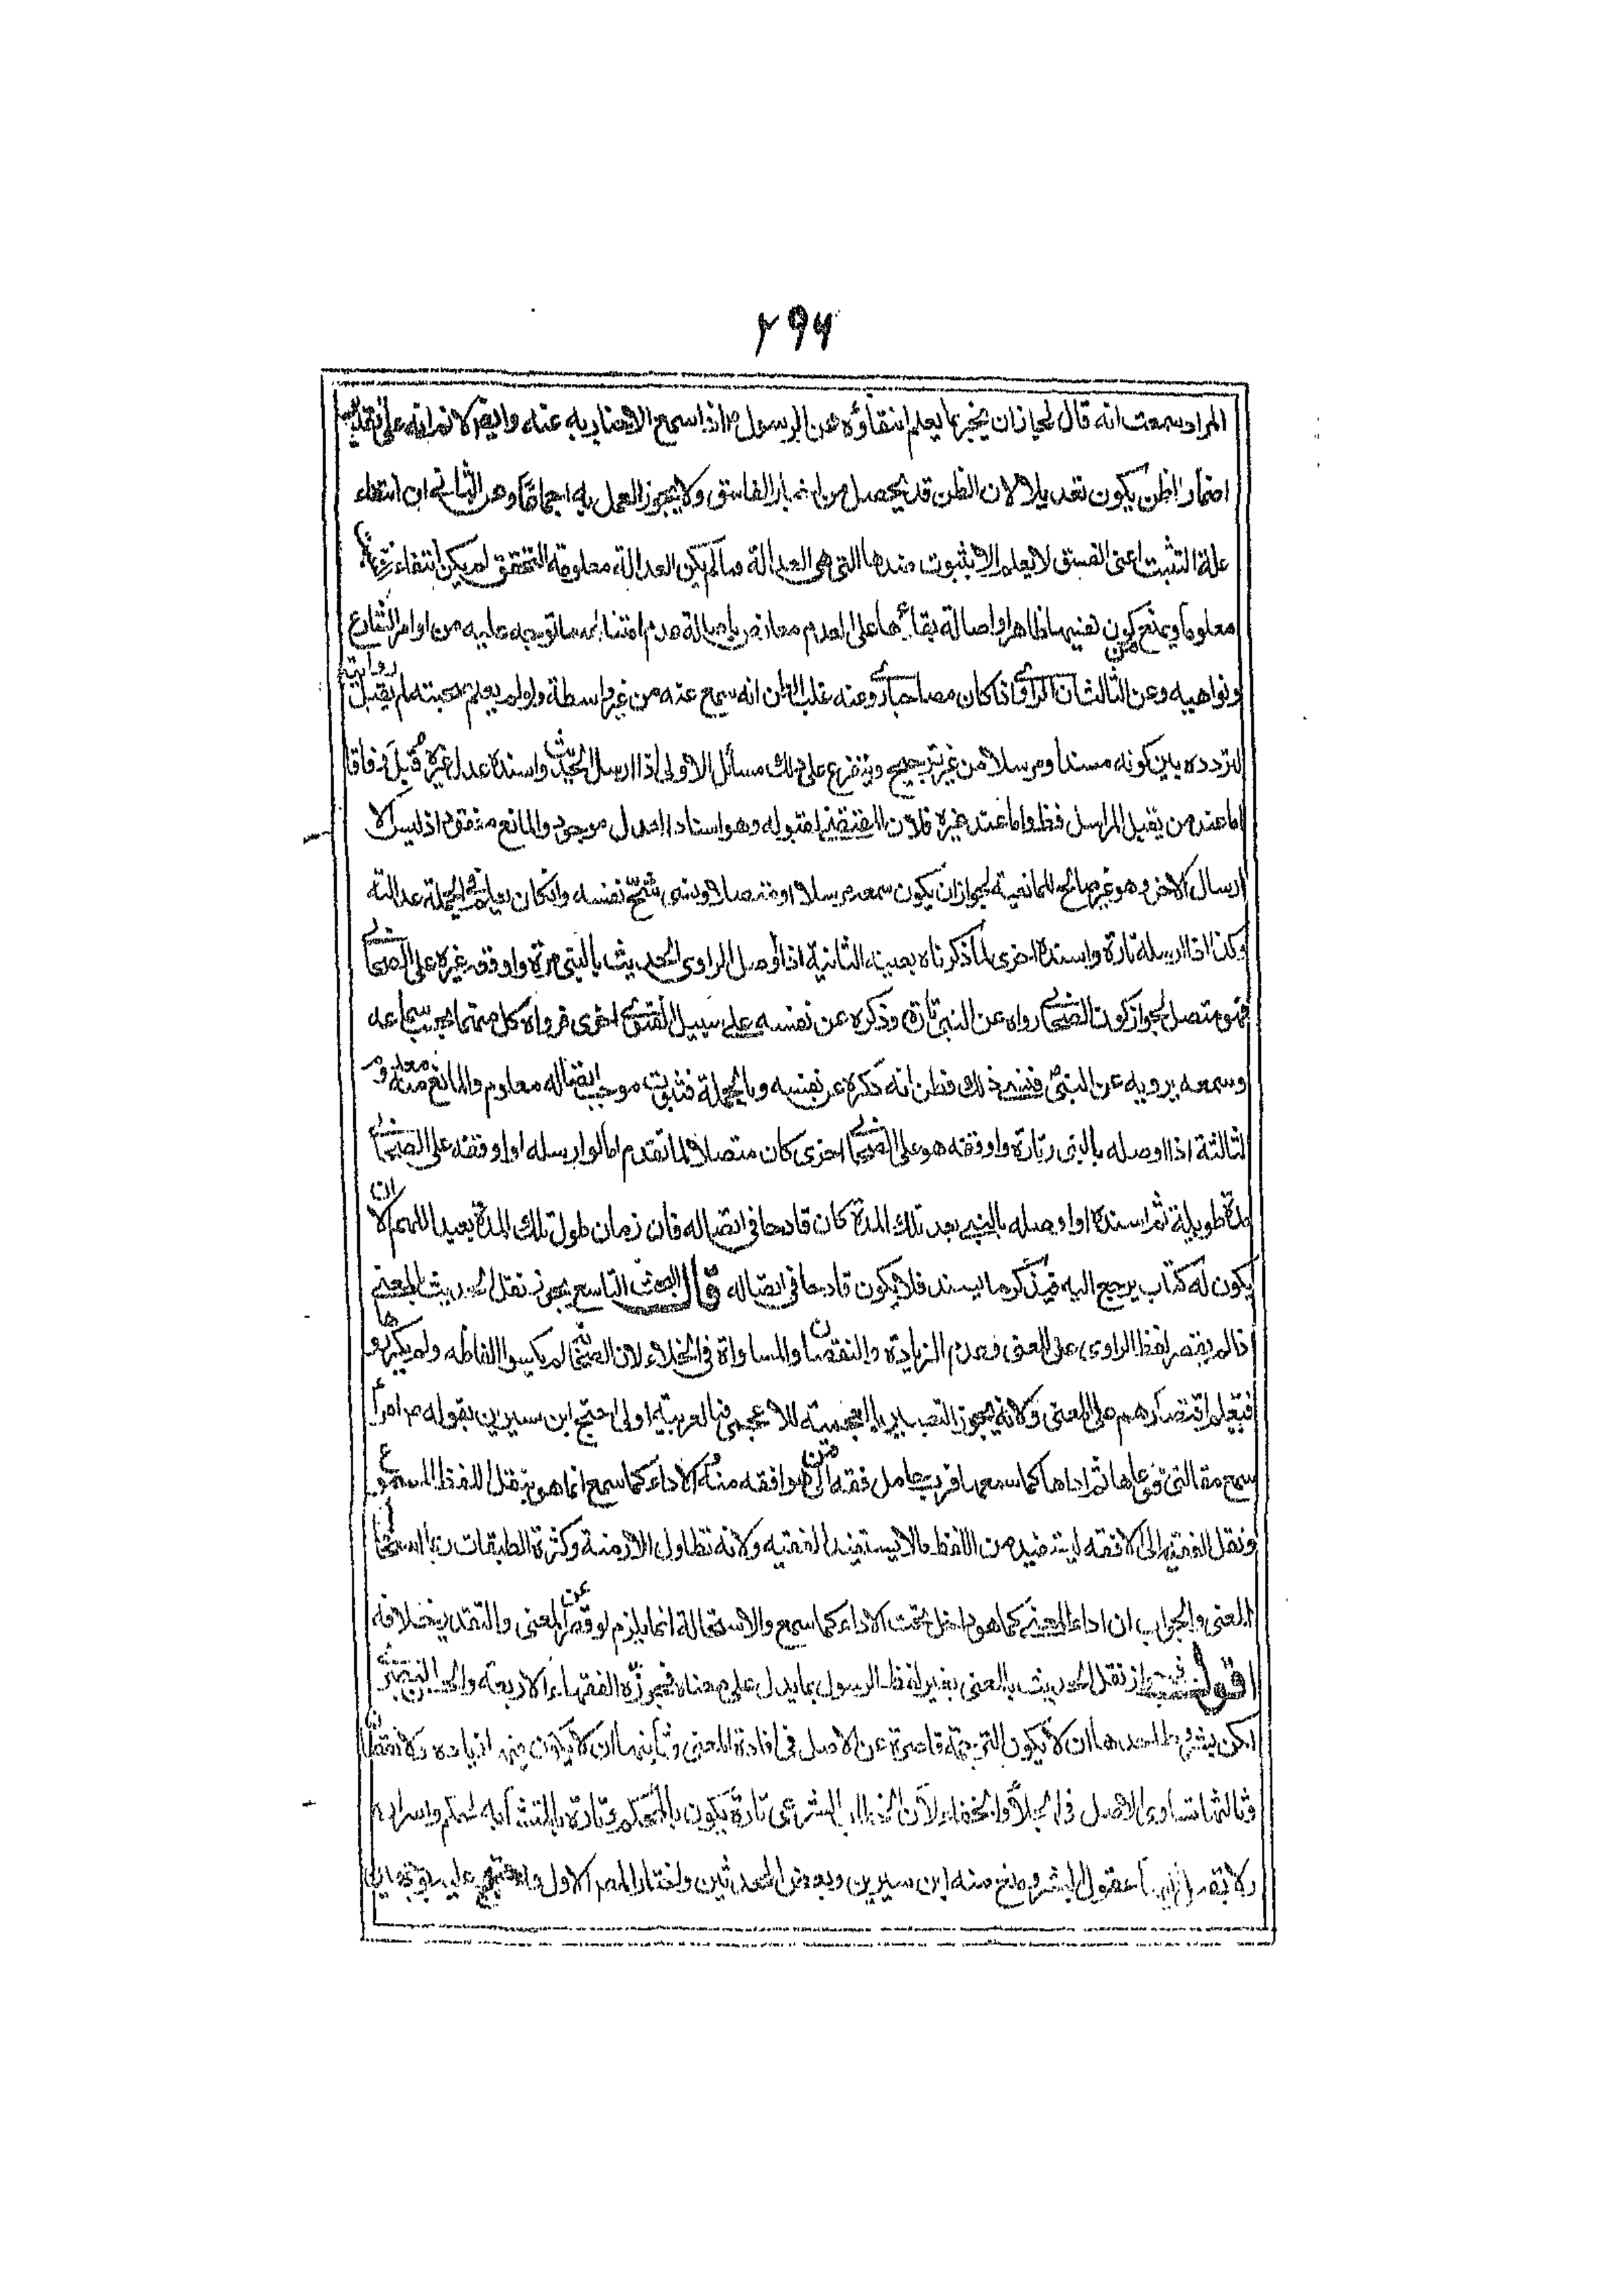 ۲۹۶
المراد سمعت انه قال لجاز ان يخبر بما يعلم انتفاؤه عن الرسول م اذا سمع الاخبار به عنه وايضا لانم انه على تقدير
اضمار الظن يكون تعديلا لان الظن قد يحصل من اخبار الفاسق ولا يجوز العمل به اجماعا وعن الثانى ان انتفاء
علة التثبت اعنى الفسق لا يعلم الا بثبوت ضدها التى هى العدالة وما لم يكن العدالة معلومة التحقق لم يكن انتفاء
معلوما ويمنع كون نفيهما ظاهرا واصالة بقائها على العدم معارض باصالة عدم امتثاله ما توجه عليه من اوامر الشارع
ونواهيه وعن الثالث ان الراوى اذا كان مصاحبا لمن روى عنه غلب الظن انه سمع عنه من غير واسطة ولو لم يعلم صحبته لم يقبل روايته
لتردده بين كونه مسندا ومرسلا من غير ترجيح ويتفرع على ذلك مسائل الاولى اذا ارسل الحديث واسنده عدل غيره قبل وفاقا
اما عند من يقبل المراسل فظ واما عند غيره فلان المقتضى لقبوله وهو اسناد العدل موجود والمانع مفقود اذ ليس الا
ارسال الاخر وهو غير صالح للمانعية لجواز ان يكون سمعه مرسلا او متصلا ونسى شيخ نفسه وان كان يعلم فى الجملة عدالته
وكذا اذا ارسله تارة واسنده اخرى لما ذكرناه بعينه الثانية اذا اوصل الراوى الحديث بالنبى مرة واوقفه غيره على الصحابى
فهو متصل لجواز كون الصحابى رواه عن النبى تارة وذكره عن نفسه على سبيل الفتوى اخرى فرواه كل منهما بحسب سماعه
وسمعه يرويه عن النبى فنسى ذلك فظن انه ذكره عن نفسه وبالجملة فثبوت موجب اتصاله معلوم والمانع منه معدوم
الثالثة اذا اوصله بالنبى تارة واوقفه هو على الصحابى اخرى كان متصلا لما تقدم اما لو ارسله او اوقفه على الصحابى
مدة طويلة ثم اسنده او اوصله بالنبى بعد تلك المدة كان قادحا فى اتصاله فان زمان طول تلك المدة بعيد اللهم الا ان
يكون له كتاب يرجع اليه فيذكر ما يسند فلا يكون قادحا فى اتصاله قال البحث التاسع يجوز نقل الحديث بالمعنى
اذا لم يقصر لفظ الراوى على المعنى وعدم الزيادة والنقصان والمساواة فى الجلاء لان الصحابة لم يكتبوا الفاظه ولم يكررها
فيعلم اقتصارهم على المعنى ولانه يجوز التعبير بالعجمية للاعجمى فبالعربية اولى احتج ابن سيرين بقوله م امرأ
سمع مقالتى فوعاها ثم اداها كما سمعها فرب حامل فقه الى من هو افقه منه الاداء كما سمع انما هو بنقل اللفظ المسموع
ونقل الفقيه الى الافقه ليستفيد من اللفظ ما لا يستفيد الفقيه ولانه تطاول الازمنة وكثرة الطبقات
المعنى والجواب ان اداء المعنى كما هو داخل تحت الاداء كما سمع والاستحالة انما يلزم لو قصر عن المعنى والتقدير خلافه
اقول جواز نقل الحديث بالمعنى بغير لفظ الرسول بما يدل على معناه فجوزه الفقهاء الاربعة والحسن البصرى
لكن بشروط احدها ان لا يكون الترجمة قاصرة عن الاصل فى افادة المعنى وثانيها ان لا يكون فيها زيادة ولا نقصان
وثالثها تساوى الاصل فى الجلاء والخفاء لان الخطاب الشرعى تارة يكون بالمحكم وتارة بالمتشابه لحكم واسرار
عقول البشر ومنع منه ابن سيرين وبعض المحدثين واختار المصر الاول واحتج عليه بوجهين